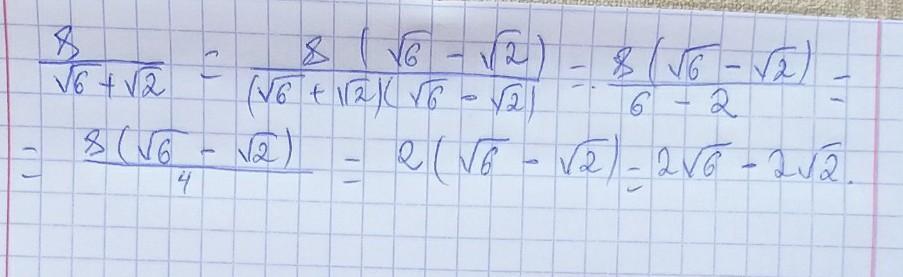 8/(√6 + √2) = 8(√6 - √2)/((√6 + √2)(√6 - √2)) = 8(√6 - √2)/(6 - 2) =
= 8(√6 - √2)/4 = 2(√6 - √2) = 2√6 - 2√2.